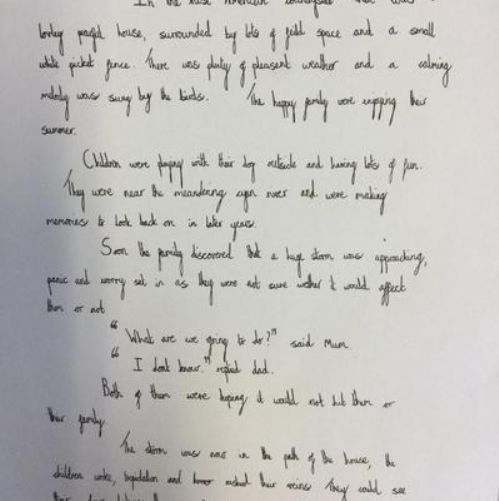 In the vast American countryside that was a
lovley pagid house, surrounded by lots of feild space and a small
white picket fence. There was plenty of pleasent weather and a calming
melody was sung by the birds. The happy family were enjoying their
summer.
Children were playing with their dog outside and having lots of fun.
They were near the meandering cyan river and were making
memories to look back on in later years.
Soon the family discovered that a huge storm was approaching,
panic and worry set in as they were not sure wether it would affect
them or not
"What are we going to do?" said Mum.
"I dont know." replied dad.
Both of them were hoping it would not hit them or
their family
The storm was now in the path of the house, the
children woke, trepidation and horror reached their veins They could see
their